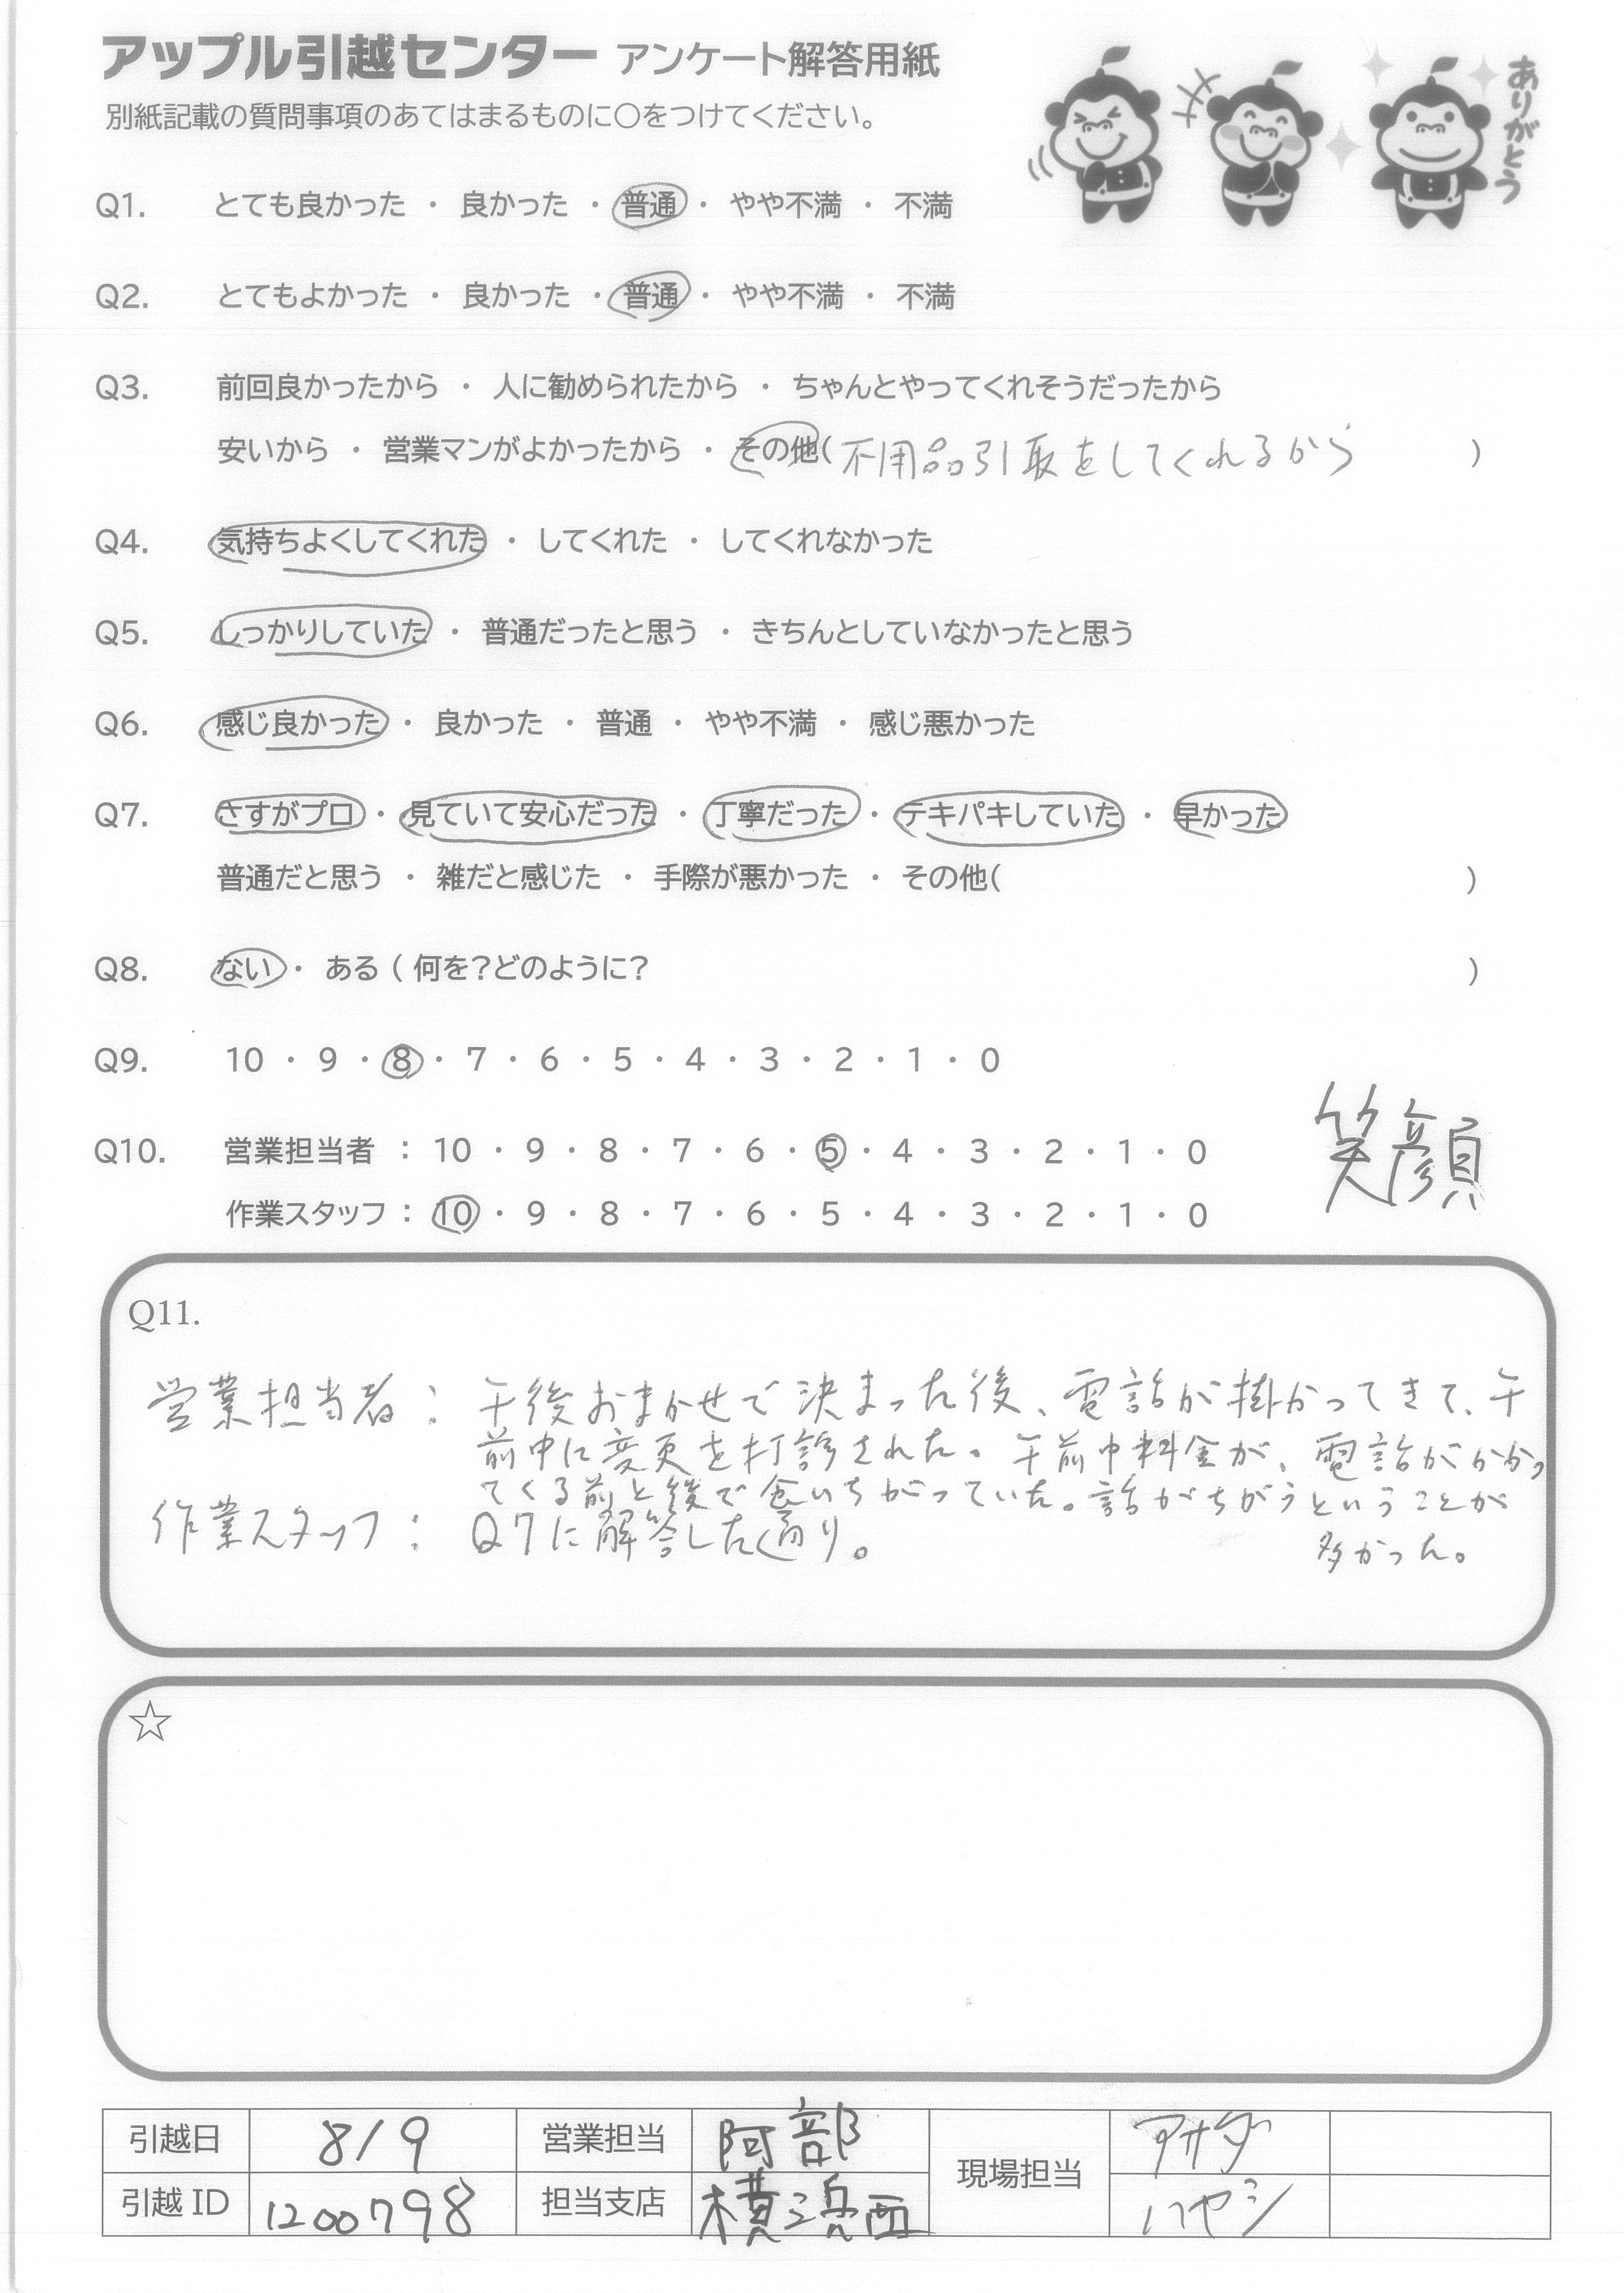 アップル引越センター アンケート解答用紙
ありがとう
別紙記載の質問事項のあてはまるものに○をつけてください。
Q1. とても良かった ・ 良かった ・ 普通 ・ やや不満 ・ 不満
Q2. とてもよかった ・ 良かった ・ 普通 ・ やや不満 ・ 不満
Q3. 前回良かったから ・ 人に勧められたから ・ ちゃんとやってくれそうだったから
安いから ・ 営業マンがよかったから ・ その他( 不用品引取をしてくれるから )
Q4. 気持ちよくしてくれた ・ してくれた ・ してくれなかった
Q5. しっかりしていた ・ 普通だったと思う ・ きちんとしていなかったと思う
Q6. 感じ良かった ・ 良かった ・ 普通 ・ やや不満 ・ 感じ悪かった
Q7. さすがプロ ・ 見ていて安心だった ・ 丁寧だった ・ テキパキしていた ・ 早かった
普通だと思う ・ 雑だと感じた ・ 手際が悪かった ・ その他( )
Q8. ない ・ ある ( 何を?どのように? )
Q9. 10 ・ 9 ・ 8 ・ 7 ・ 6 ・ 5 ・ 4 ・ 3 ・ 2 ・ 1 ・ 0
Q10. 営業担当者 : 10 ・ 9 ・ 8 ・ 7 ・ 6 ・ 5 ・ 4 ・ 3 ・ 2 ・ 1 ・ 0
作業スタッフ : 10 ・ 9 ・ 8 ・ 7 ・ 6 ・ 5 ・ 4 ・ 3 ・ 2 ・ 1 ・ 0
笑顔
Q11.
営業担当者 : 午後おまかせで決まった後、電話が掛かってきて、午
前中に変更を打診された。午前中料金が、電話がかかっ
てくる前と後で食いちがっていた。話がちがうということが
多かった。
作業スタッフ : Q7に解答した通り。
☆
引越日 8/9 営業担当 阿部 現場担当 アサダ
引越ID 1200798 担当支店 横浜西 ハヤシ